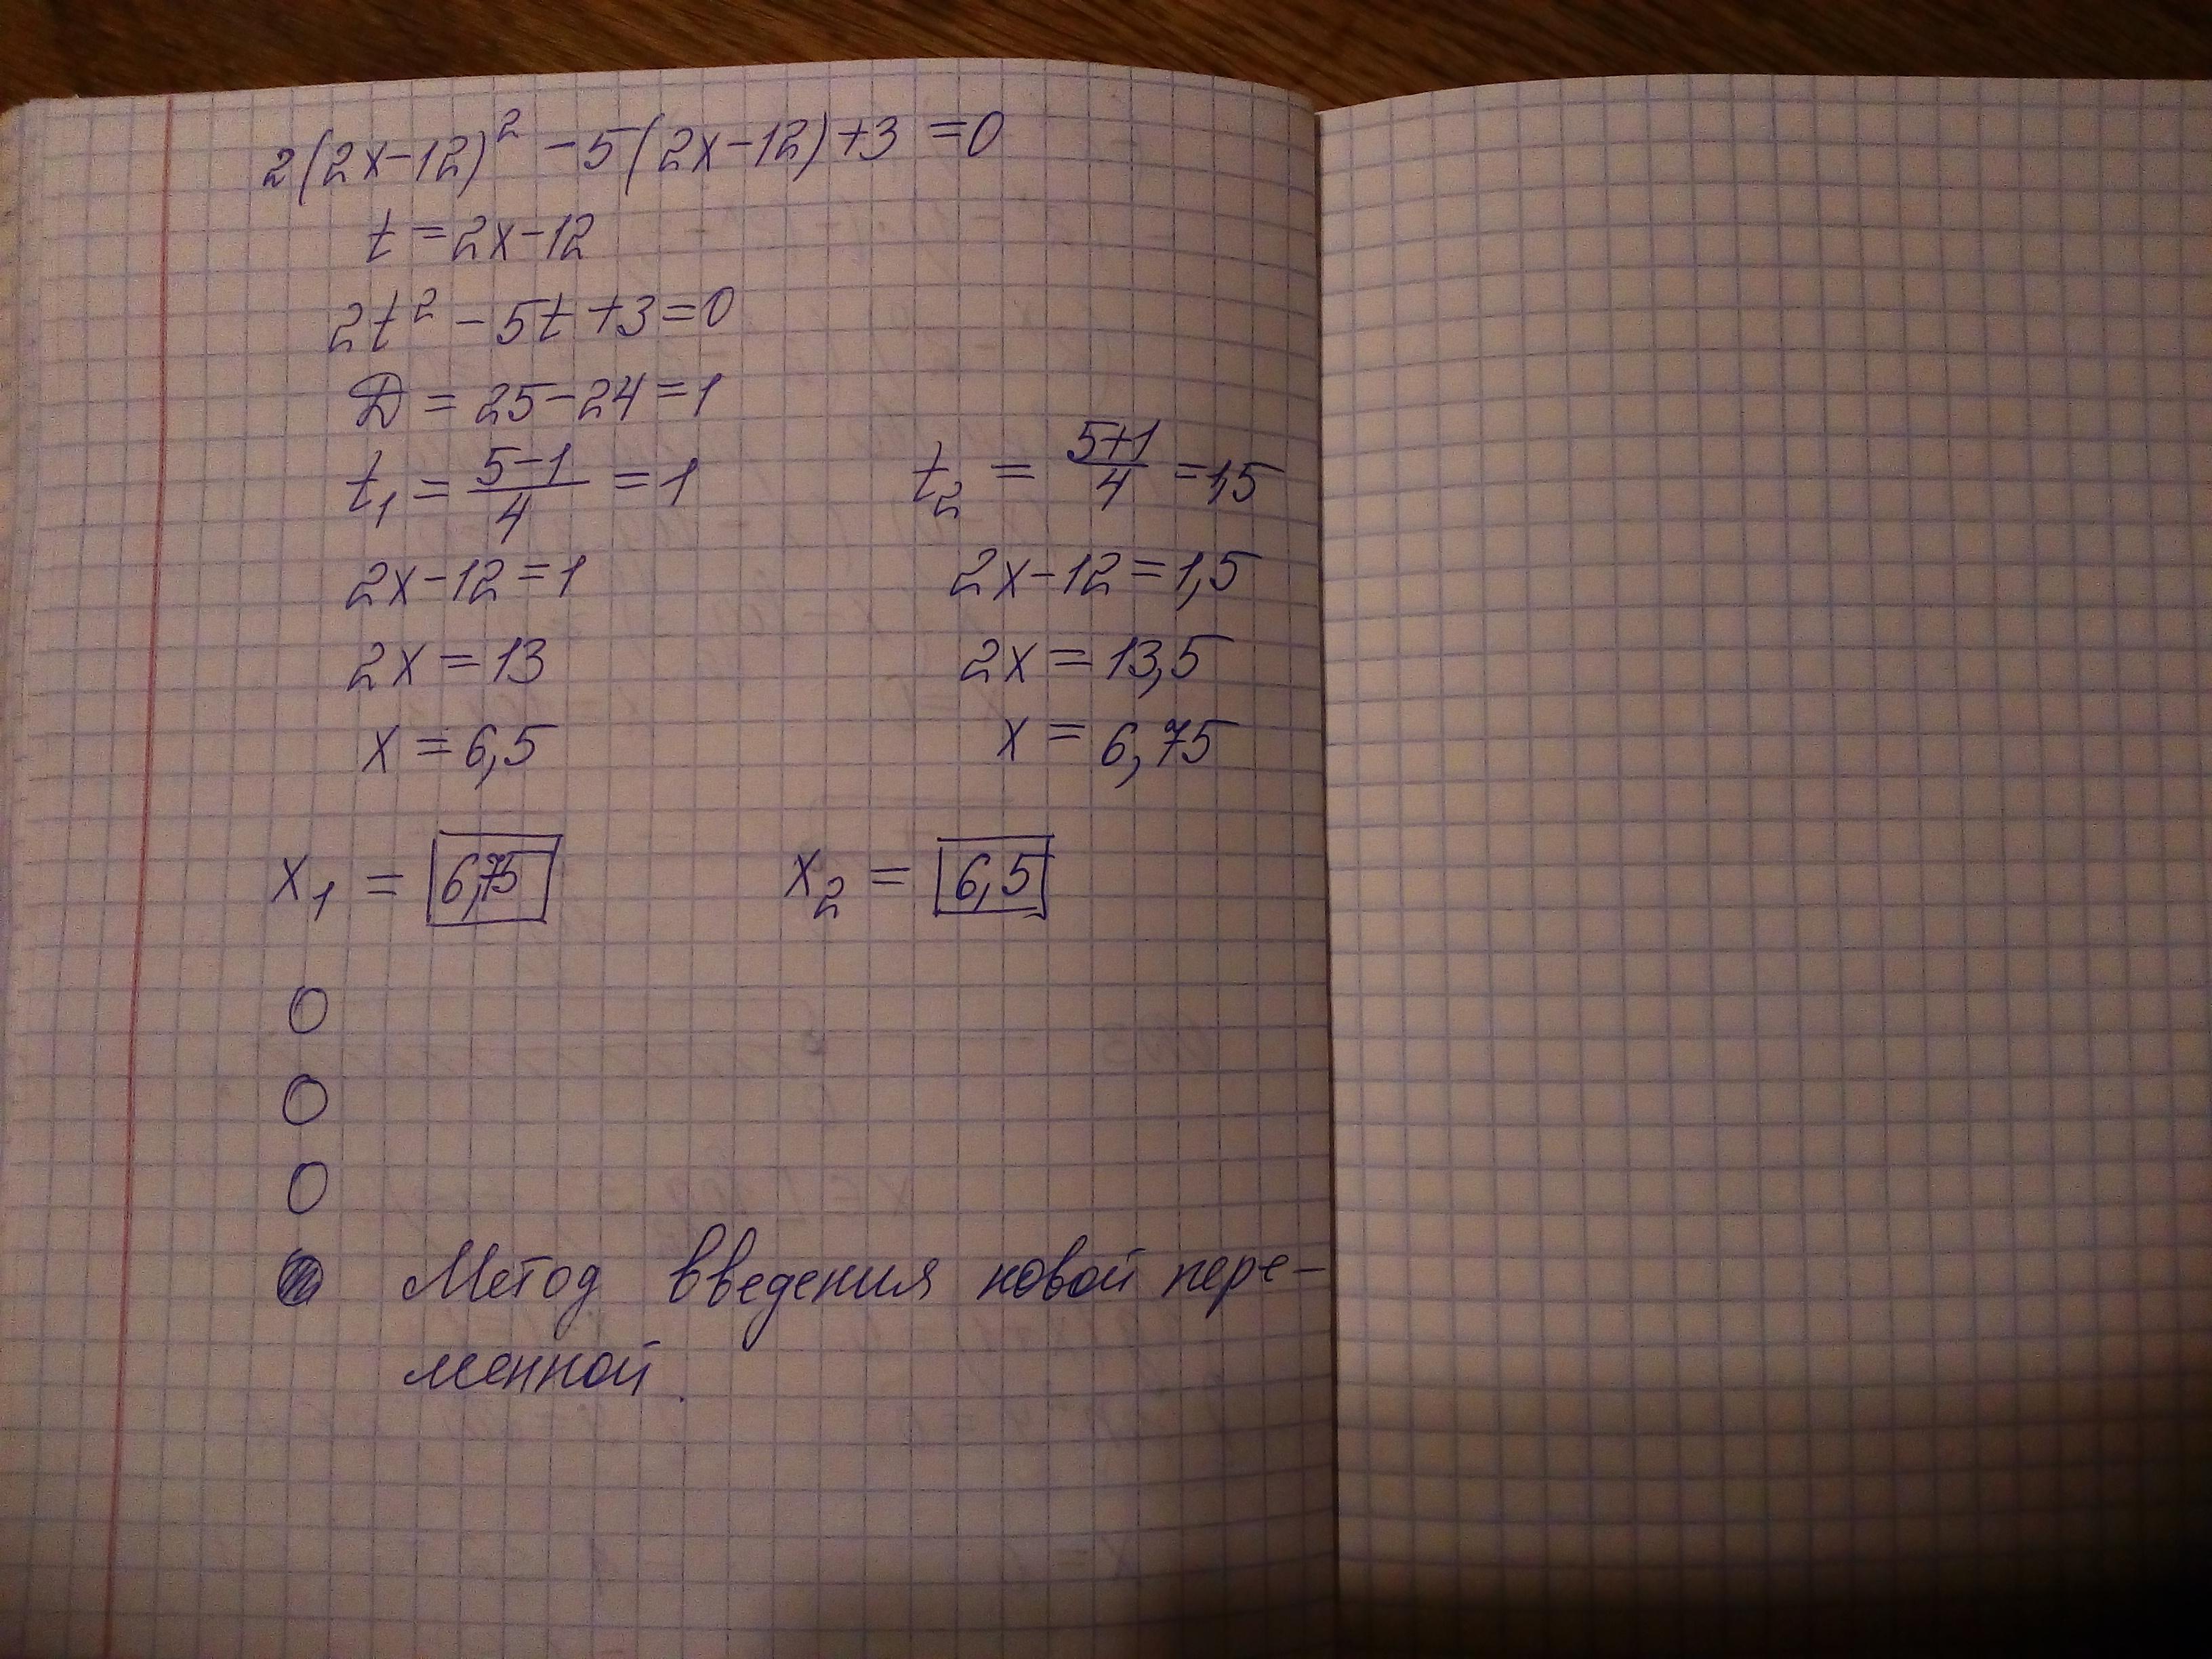 2(2x-12)² -5(2x-12)+3=0
t=2x-12
2t²-5t+3=0
D=25-24=1
t₁=(5-1)/4=1 t₂=(5+1)/4=1,5
2x-12=1 2x-12=1,5
2x=13 2x=13,5
x=6,5 x=6,75
x₁=6,75 x₂=6,5
Метод введения новой пере-
менной.